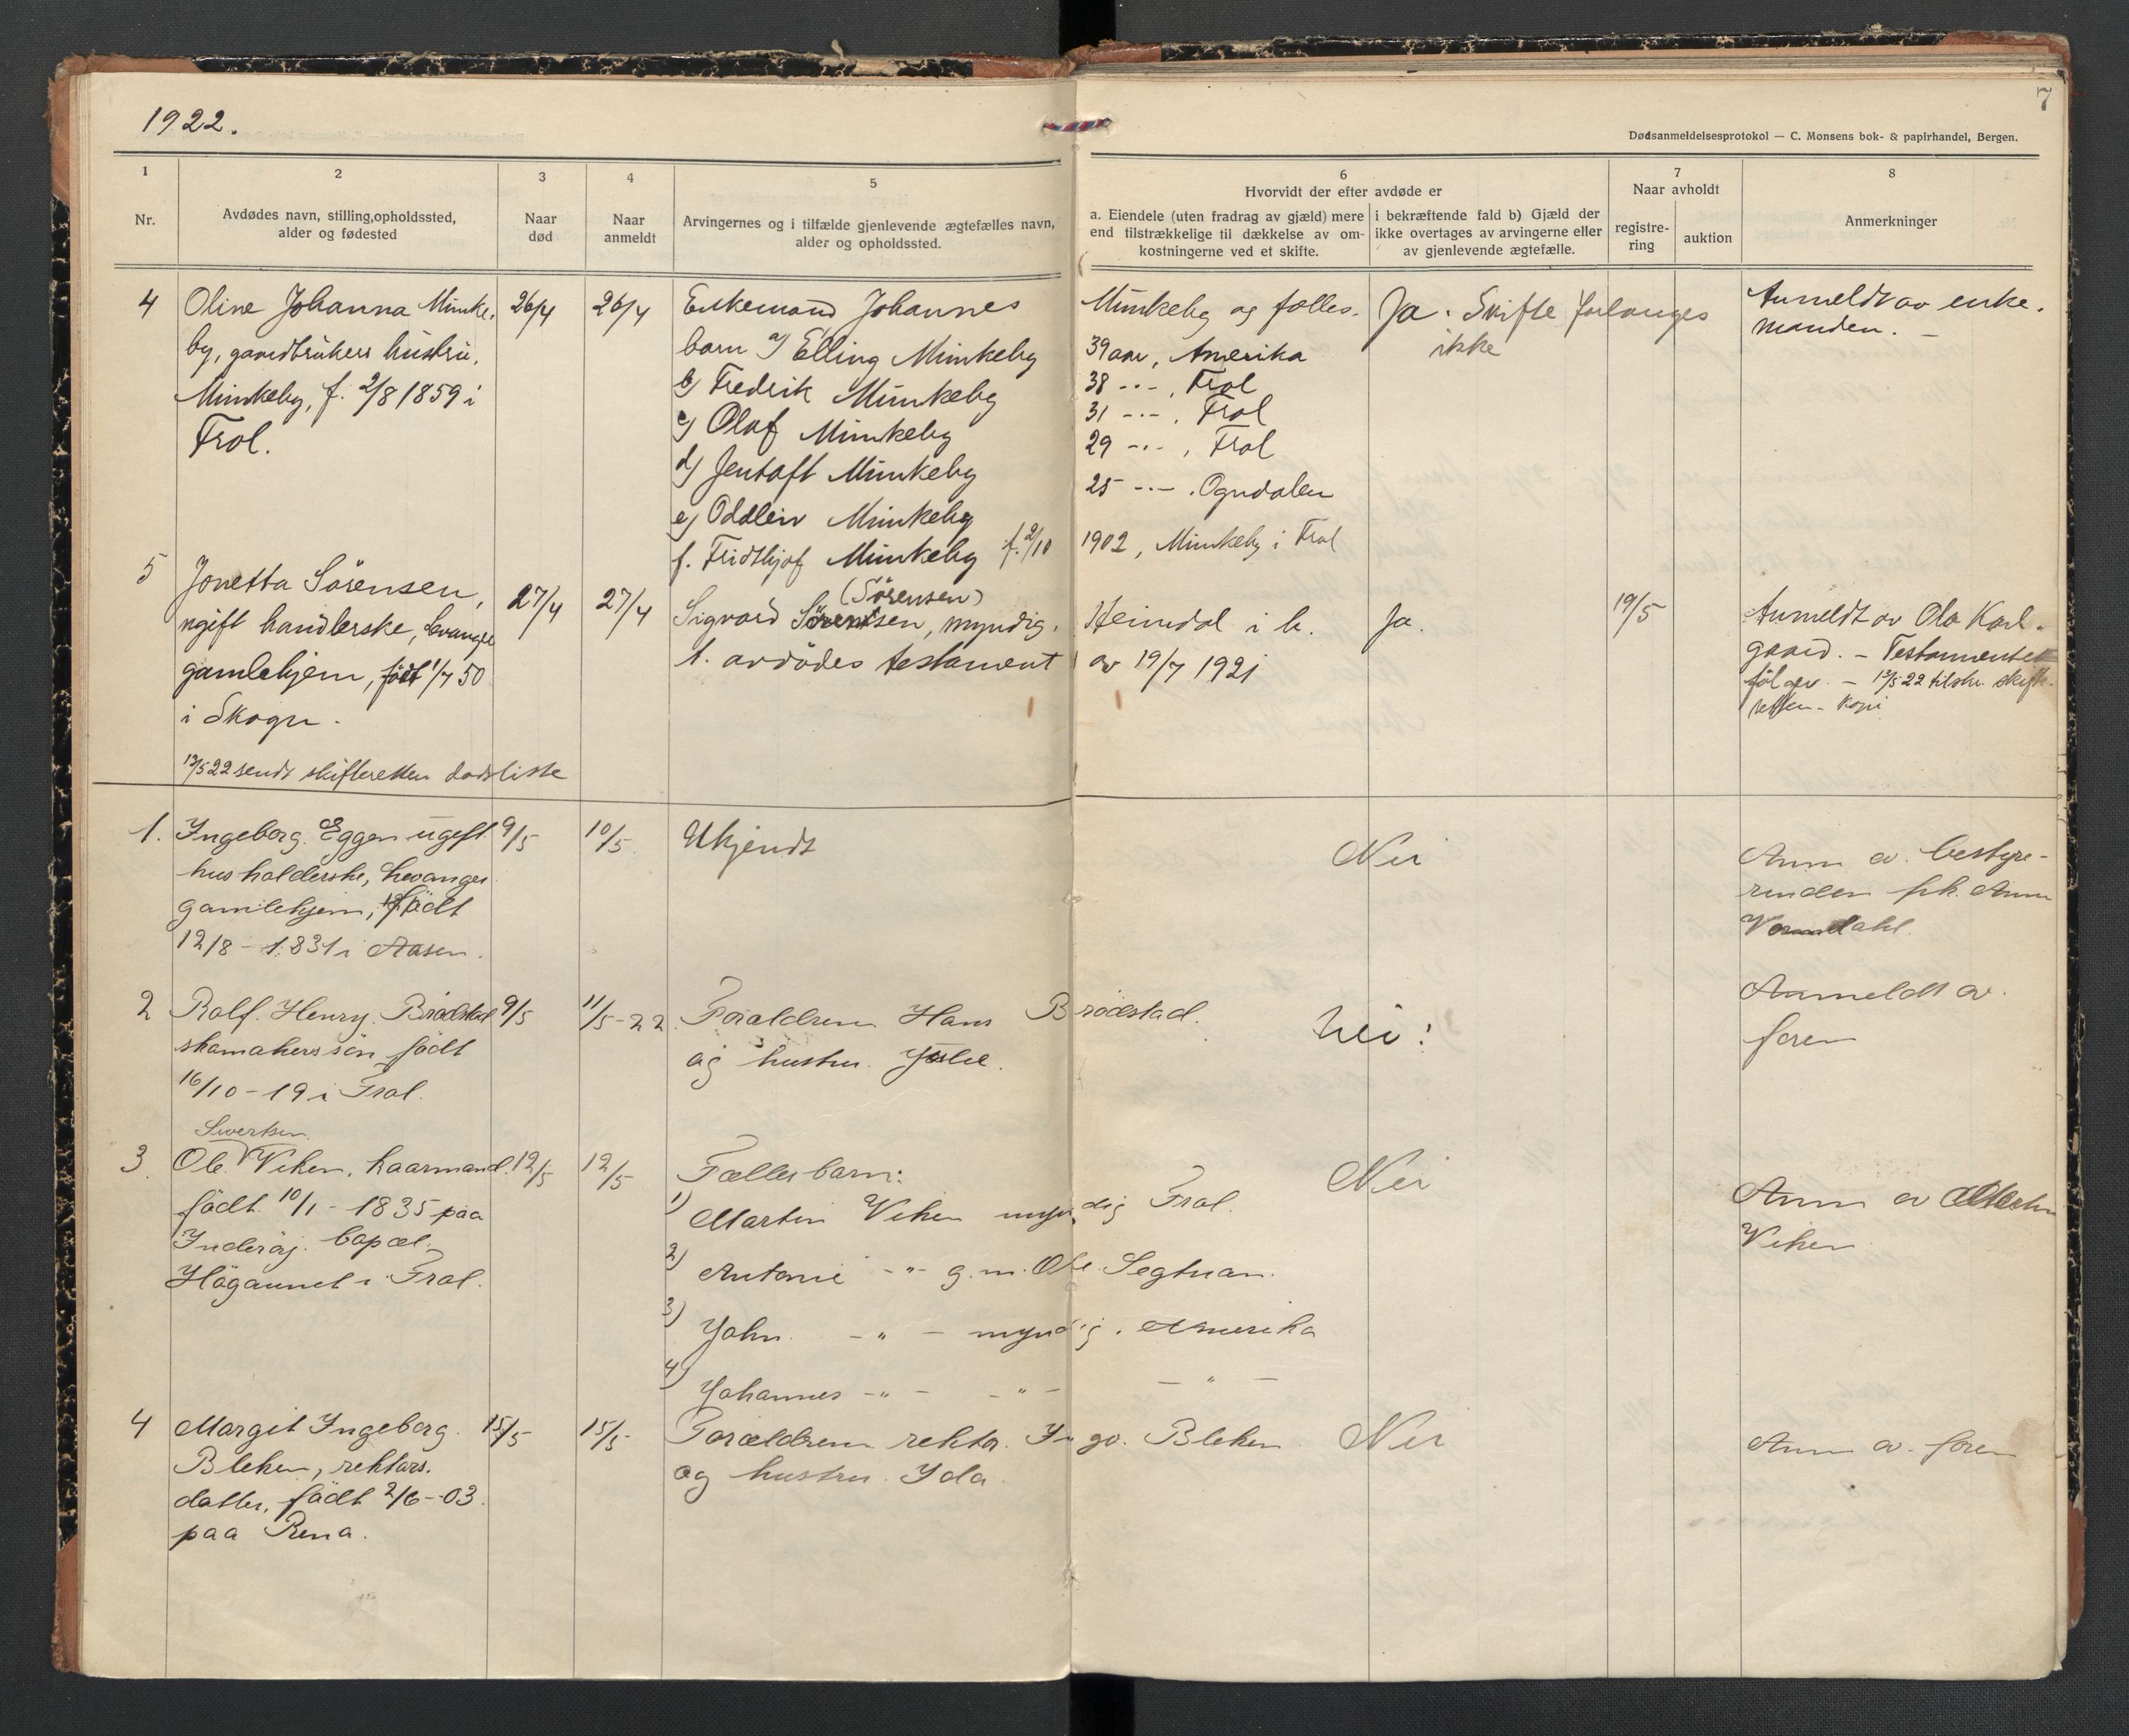 1922.
7
Dødsanmeldelsesprotokol — C. Monsens bok- & papirhandel, Bergen.
1
2
3
4
5
6
7
8
Nr.
Avdødes navn, stilling,opholdssted,
alder og fødested
Naar
død
Naar
anmeldt
Arvingernes og i tilfælde gjenlevende ægtefælles navn,
alder og opholdssted.
Hvorvidt der efter avdøde er
a. Eiendele (uten fradrag av gjæld) mere
end tilstrækkelige til dækkelse av om-
kostningerne ved et skifte.
i bekræftende fald b) Gjæld der
ikke overtages av arvingerne eller
av gjenlevende ægtefælle.
Naar avholdt
registre-
ring
auktion
Anmerkninger
4
Oline Johanna Munke-
by, gaardbrukers hustru,
Munkeby, f. 2/8 1859 i
Frol.
26/4
26/4
Enkemand Johannes Munkeby og fælles-
barn a) Elling Munkeby 39 aar, Amerika
b) Fredrik Munkeby 38 -"-, Frol
c) Olaf Munkeby 31 -"-, Frol
d) Jentoft Munkeby 29 -"-, Frol
e) Oddleiv Munkeby 25 -"-. Ogndalen
f. Fridthjof Munkeby f. 2/10 1902, Munkeby i Frol
Ja. Skifte forlanges
ikke
Anmeldt av enke-
manden. —
5
Jonetta Sörensen,
ugift handlerske, Levanger
gamlehjem, født 1/7 50
i Skogn.
13/5 22 sendt skifteretten dødsliste
27/4
27/4
(Sörensen)
Sigvard Sörensen, myndig. Heimdal i h.
t. avdödes testament av 19/7 1921
Ja.
19/5
Anmeldt av Ola Karl-
gaard. — Testamentet
følger. — 13/5 22 tilskr. skifte-
retten - Kopi
1.
Ingeborg Eggen ugift
husholderske, Levanger
gamlehjem, födt
12/8 - 1831 i Aasen.
9/5
10/5
Ukjendt
Nei
Anm av bestyre-
rinden frk. Anna
2
Rolf Henry Brödstad
skomakers sön födt
16/10 - 19 i Frol.
9/5
11/5 - 22
Forældrene Hans Brödstad.
og hustru
nei!
Anmeldt av
faren
3.
Sivertsen
Ole Viken, kaarmand.
födt 10/1 - 1835 paa
Inderöy. bopæl.
Högaunet i Frol.
12/5
12/5
Fællesbarn:
1) Martin Viken myndig Frol.
2) Antonie -"- g.m. Ole Segtnan.
3) John -"- myndig. Amerika
4) Johannes -"- -"- -"-
Nei
Anm av
Viken
4
Margit Ingeborg
Bleken, rektors.
datter, födt 2/6 -03.
paa Rena.
15/5
15/5
Forældrene rektor Ingv. Bleken
og hustru Ida.
Nei
Anm av faren